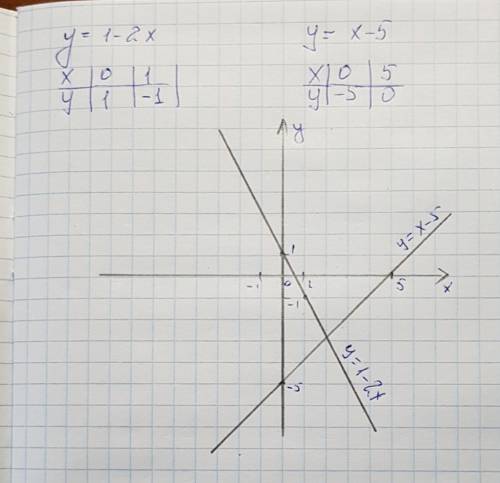 y = 1-2x
y = x-5
x 0 1
y 1 -1
x 0 5
y -5 0
y
y=x-5
1
-1 0 5 x
-1
y=1-2x
-5